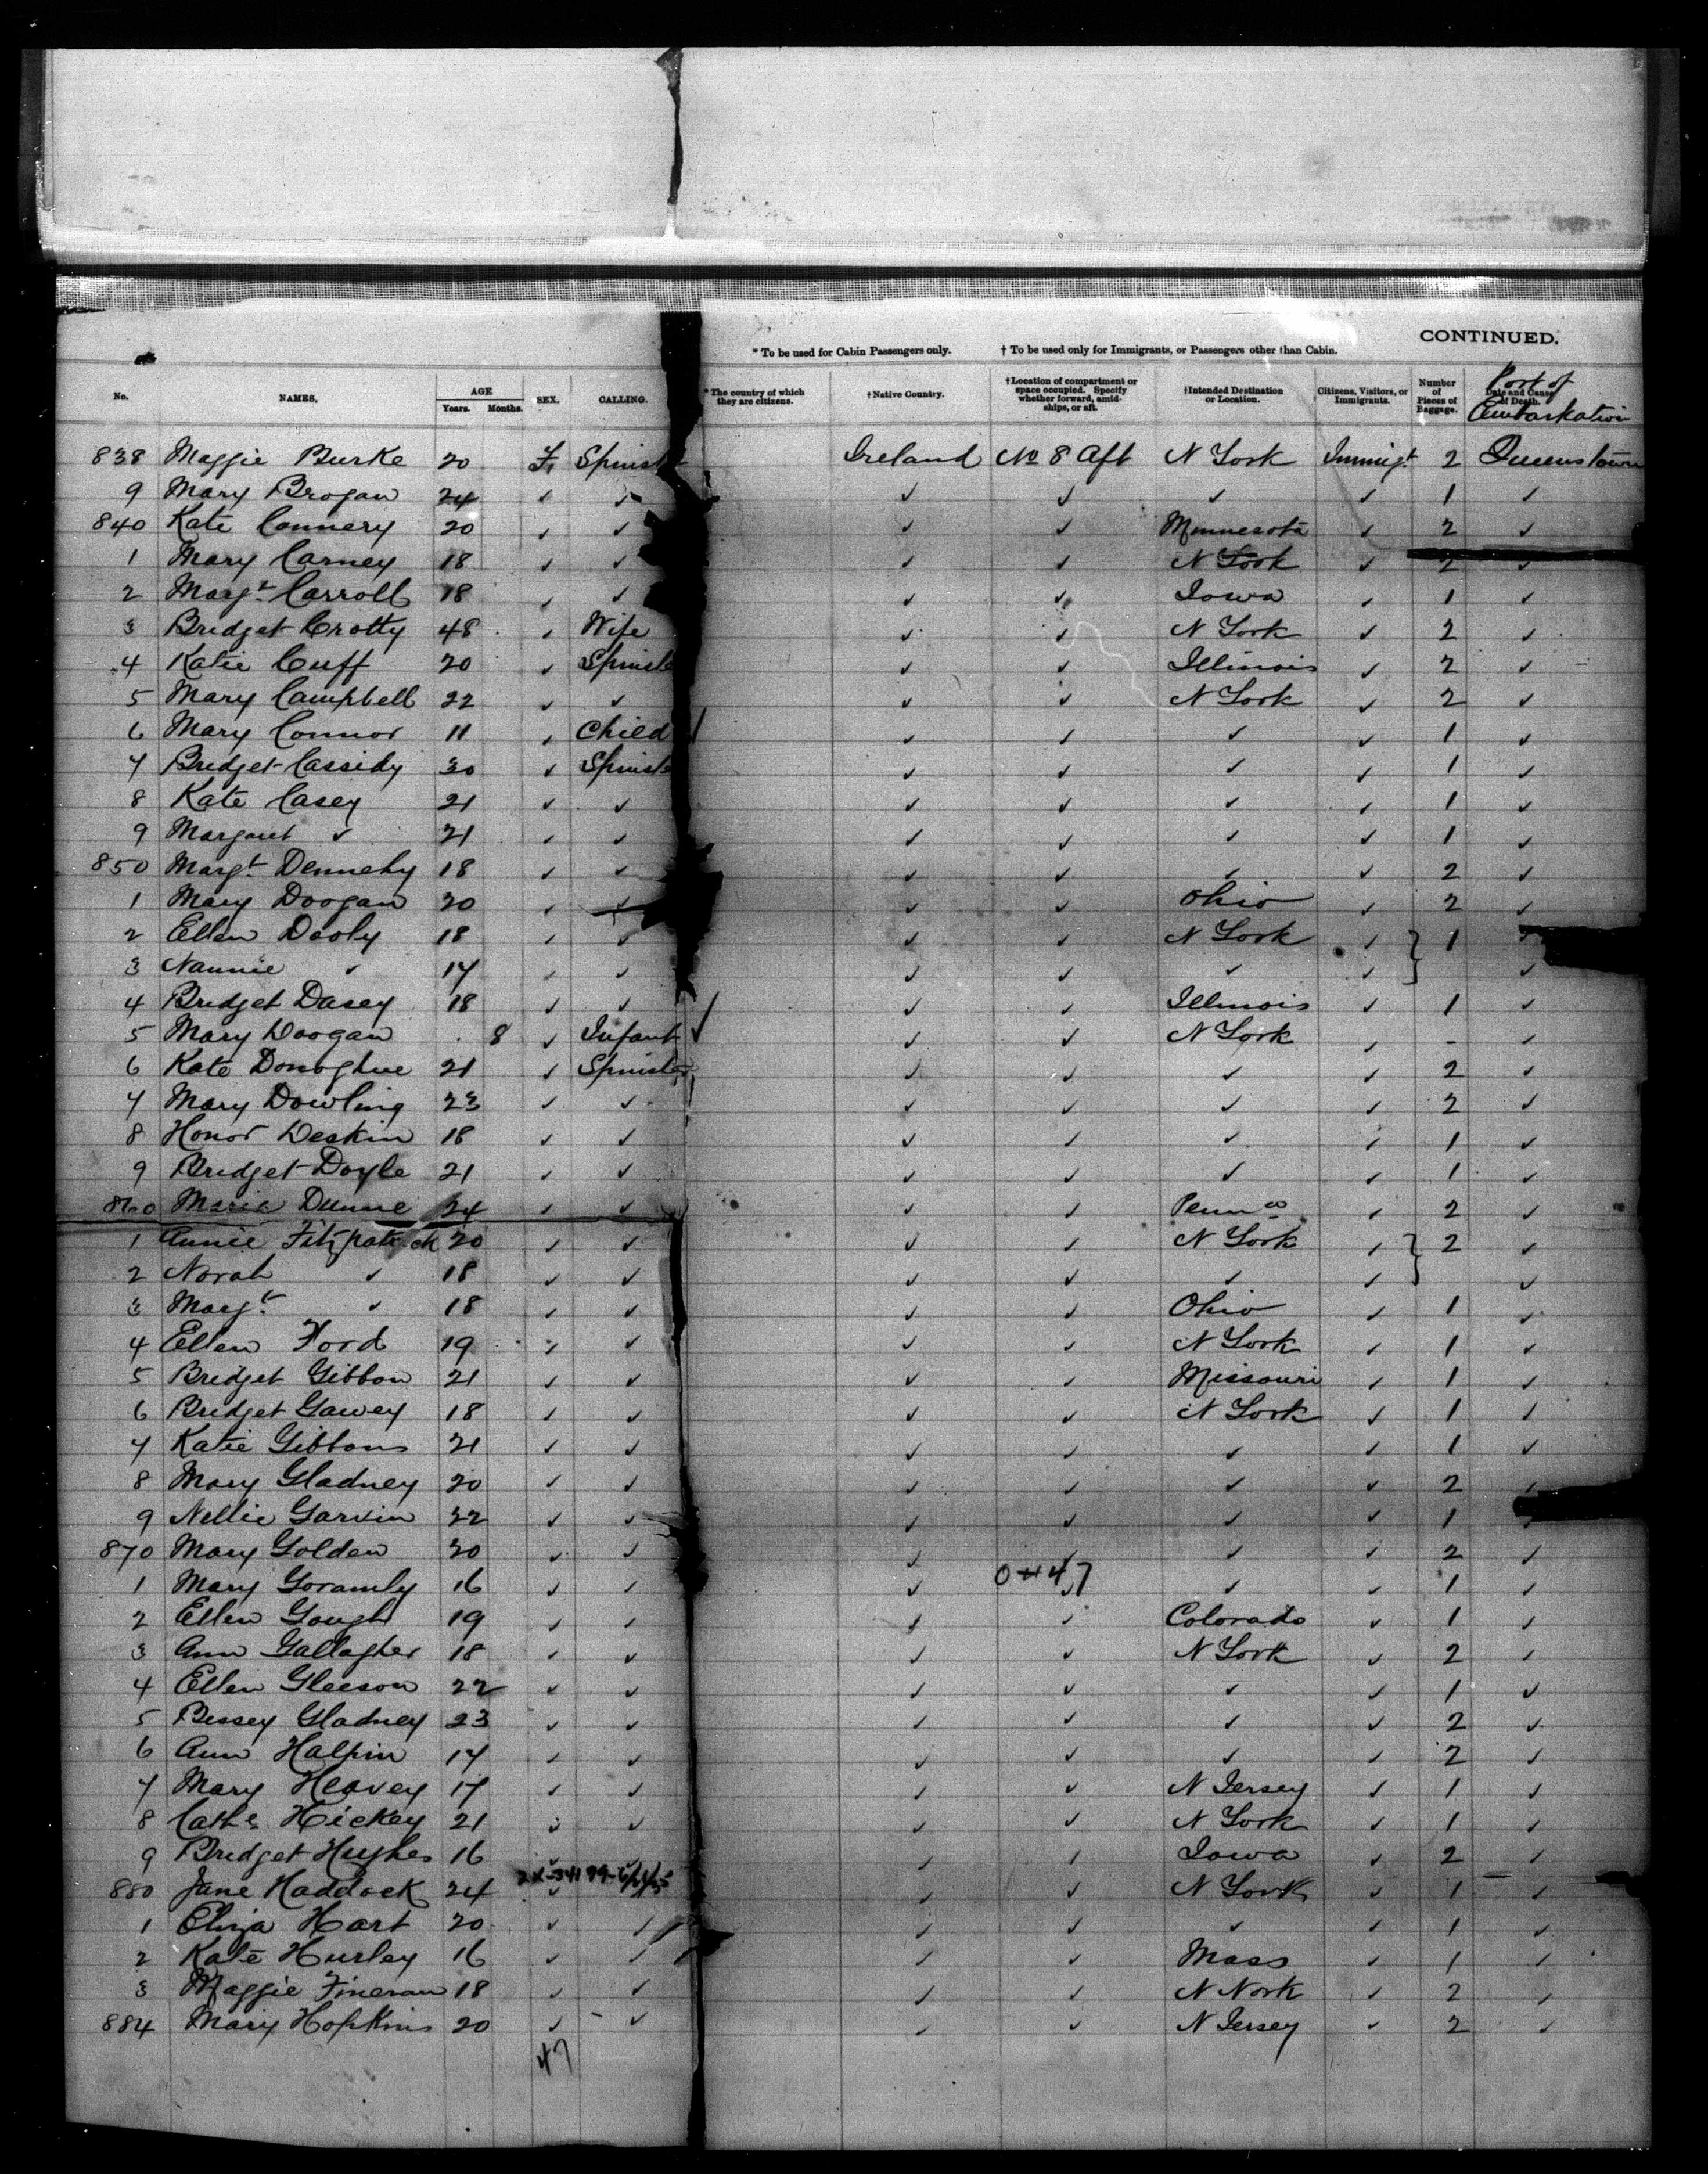 CONTINUED.
* To be used for Cabin Passengers only. † To be used only for Immigrants, or Passengers other than Cabin.
No. NAMES. AGE Years. Months. SEX. CALLING. * The country of which they are citizens. † Native Country. † Location of compartment or space occupied. Specify whether forward, amidships, or aft. † Intended Destination or Location. Citizens, Visitors, or Immigrants. Number of Pieces of Baggage. Date and Cause of Death. Port of Embarkation
838 Maggie Burke 20 F. Spinst Ireland No 8 Aft N York Immigt. 2 Queenstown
9 Mary Brogan 24 ✓ ✓ ✓ ✓ ✓ ✓ 1 ✓
840 Kate Connery 20 ✓ ✓ ✓ ✓ Minnesota ✓ 2 ✓
1 Mary Carney 18 ✓ ✓ ✓ ✓ N York ✓ 2 ✓
2 Margt. Carroll 18 ✓ ✓ ✓ ✓ Iowa ✓ 1 ✓
3 Bridget Crotty 48 ✓ Wife ✓ ✓ N York ✓ 2 ✓
4 Katie Cuff 20 ✓ Spinste ✓ ✓ Illinois ✓ 2 ✓
5 Mary Campbell 22 ✓ ✓ ✓ ✓ N York ✓ 2 ✓
6 Mary Connor 11 ✓ Child ✓ ✓ ✓ ✓ ✓ 1 ✓
7 Bridget Cassidy 30 ✓ Spinste ✓ ✓ ✓ ✓ 1 ✓
8 Kate Casey 21 ✓ ✓ ✓ ✓ ✓ ✓ 1 ✓
9 Margaret ✓ 21 ✓ ✓ ✓ ✓ ✓ ✓ 1 ✓
850 Margt. Dennehy 18 ✓ ✓ ✓ ✓ ✓ ✓ 2 ✓
1 Mary Doogan 20 ✓ ✓ ✓ ✓ Ohio ✓ 2 ✓
2 Ellen Dooly 18 ✓ ✓ ✓ ✓ N York ✓ } 1 ✓
3 Nannie ✓ 17 ✓ ✓ ✓ ✓ ✓ ✓ ✓
4 Bridget Dasey 18 ✓ ✓ ✓ ✓ Illinois ✓ 1 ✓
5 Mary Doogan 8 ✓ Infant ✓ ✓ ✓ N York ✓ - ✓
6 Kate Donoghue 21 ✓ Spinster ✓ ✓ ✓ ✓ 2 ✓
7 Mary Dowling 23 ✓ ✓ ✓ ✓ ✓ ✓ 2 ✓
8 Honor Deskin 18 ✓ ✓ ✓ ✓ ✓ ✓ 1 ✓
9 Bridget Doyle 21 ✓ ✓ ✓ ✓ ✓ ✓ 1 ✓
860 Maria Dunne 24 ✓ ✓ ✓ ✓ Penna ✓ 2 ✓
1 Annie Fitzpatrick 20 ✓ ✓ ✓ ✓ N York ✓ } 2 ✓
2 Norah ✓ 18 ✓ ✓ ✓ ✓ ✓ ✓ ✓
3 Margt. ✓ 18 ✓ ✓ ✓ ✓ Ohio ✓ 1 ✓
4 Ellen Ford 19 ✓ ✓ ✓ ✓ N York ✓ 1 ✓
5 Bridget Gibbon 21 ✓ ✓ ✓ ✓ Missouri ✓ 1 ✓
6 Bridget Gawey 18 ✓ ✓ ✓ ✓ N York ✓ 1 ✓
7 Katie Gibbons 21 ✓ ✓ ✓ ✓ ✓ ✓ 1 ✓
8 Mary Gladney 20 ✓ ✓ ✓ ✓ ✓ ✓ 2 ✓
9 Nellie Garvin 22 ✓ ✓ ✓ ✓ ✓ ✓ 1 ✓
870 Mary Golden 20 ✓ ✓ ✓ ✓ ✓ ✓ 2 ✓
1 Mary Goramly 16 ✓ ✓ ✓ ✓ ✓ ✓ 1 ✓
2 Ellen Gough 19 ✓ ✓ ✓ ✓ Colorado ✓ 1 ✓
3 Ann Gallagher 18 ✓ ✓ ✓ ✓ N York ✓ 2 ✓
4 Ellen Gleeson 22 ✓ ✓ ✓ ✓ ✓ ✓ 1 ✓
5 Bessey Gladney 23 ✓ ✓ ✓ ✓ ✓ ✓ 2 ✓
6 Ann Halpin 17 ✓ ✓ ✓ ✓ ✓ ✓ 2 ✓
7 Mary Heavey 17 ✓ ✓ ✓ ✓ N Jersey ✓ 1 ✓
8 Cathe Hickey 21 ✓ ✓ ✓ ✓ N York ✓ 1 ✓
9 Bridget Hughes 16 ✓ ✓ ✓ ✓ Iowa ✓ 2 ✓
880 Jane Haddock 24 ✓ ✓ ✓ N York ✓ 1 ✓
1 Eliza Hart 20 ✓ ✓ ✓ ✓ ✓ ✓ 1 ✓
2 Kate Hurley 16 ✓ ✓ ✓ ✓ Mass ✓ 1 ✓
3 Maggie Fineran 18 ✓ ✓ ✓ ✓ N York ✓ 2 ✓
884 Mary Hopkins 20 ✓ ✓ ✓ ✓ N Jersey ✓ 2 ✓
47